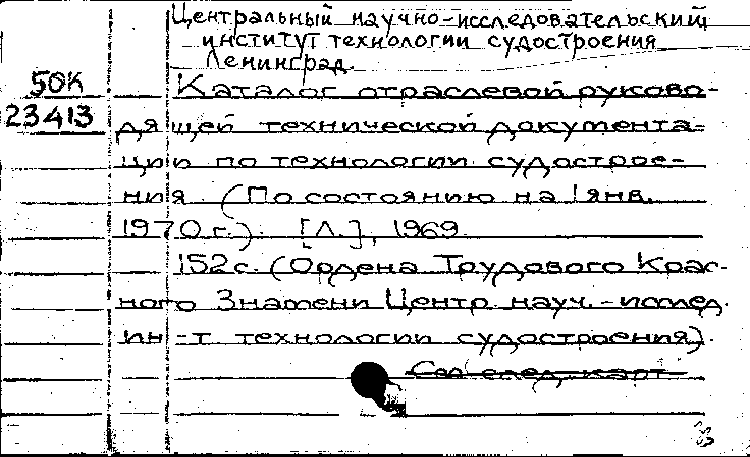 Центральный научно-исследовательский
институт технологии судостроения
Ленинград.
50К
23413
Каталог отраслевой руково-
дящей технической документа-
ции по технологии судострое-
ния (По состоянию на 1 янв.
1970 г.). [Л.], 1969.
152 с. (Ордена Трудового Крас-
ного Знамени Центр. науч.-исслед.
ин-т технологии судостроения).
См. след. карт.